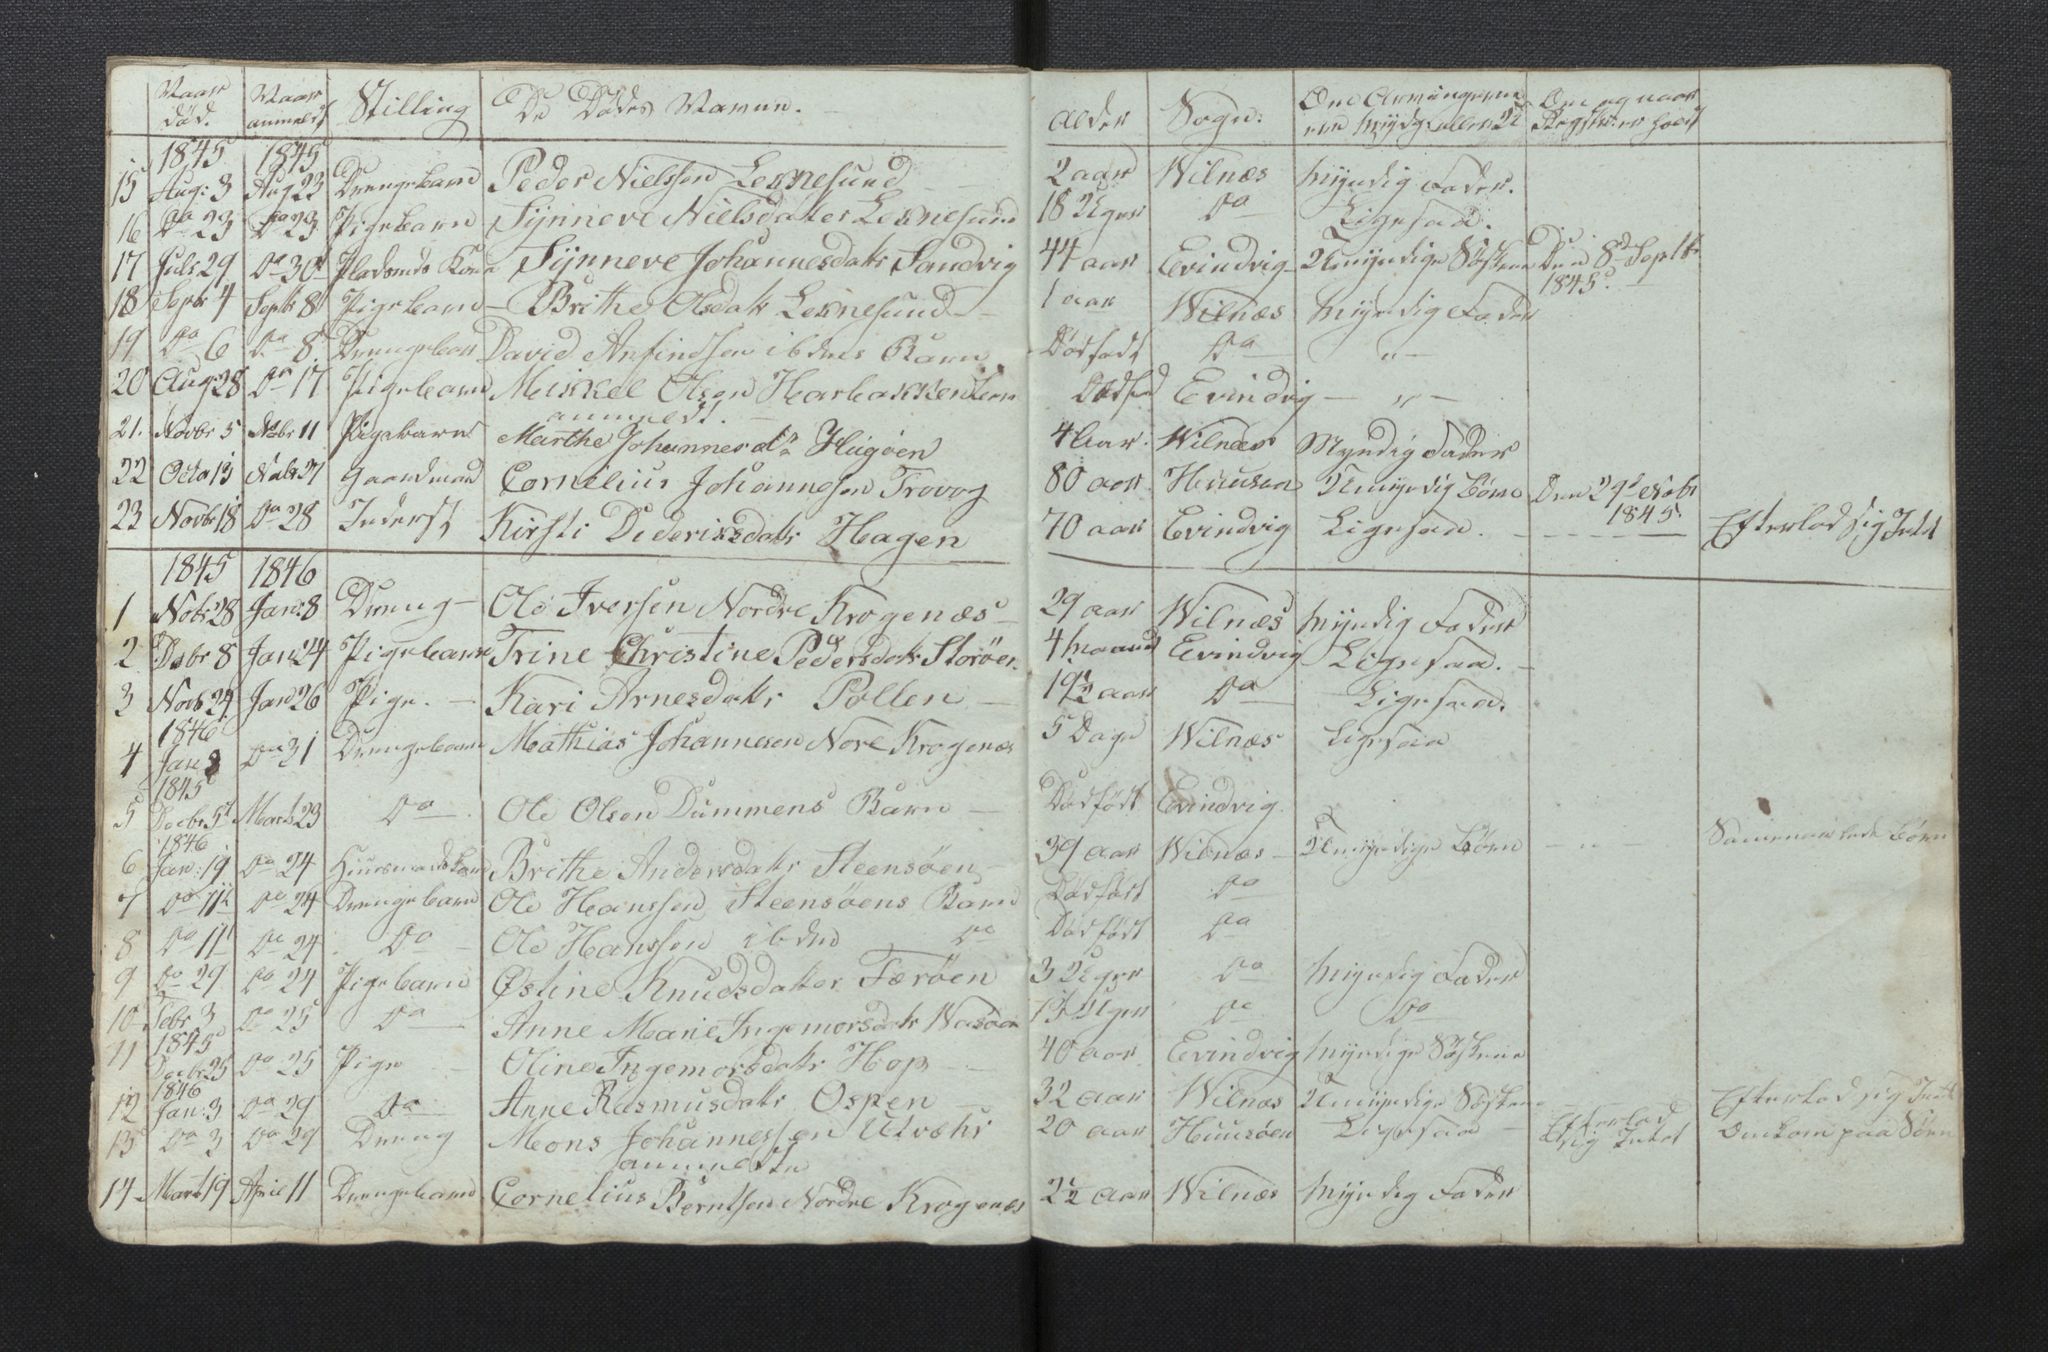 Naar død. Naar anmeldt Stilling De Dødes Navne. Alder Sogn: Om Arvingerne ere myndg: eller Om og naar holdt
1845 1845
15 Aug: 3 Aug 23 Drengebarn Peder Nielssen Leknesund 2 aar Wilnæs Myndig Fader.
16 Do 23 Do 23 Pigebarn Synneve Nielsdatter Leknesund 18 Uger Do Ligesaa.
17 Juli 29 Do 30 Pladsmds Kone Synneve Johannesdatr Sandvig 44 aar Evindvig Umyndige Søskene Den 8d Septbr 1845.
18 Septr 4 Septb 8 Pigebarn Brithe Olsdatr Leknesund 1 aar Wilnæs Myndig Fader
19 Do 6 Do 8 Drengebarn David Anfindsen ibdens Barn Dødfødt Do — " —
20 Aug 28 Do 17 Pigebarn Mikkel Olsen Harbakken Evindvig — " —
anmeldt.
21. Novbr 5 Nobr 11 Pigebarn Marthe Johannesdr Hugøen 4 Aar. Wilnæs Myndig Fader
22 Octo 13 Nobr 27 Gaardmand Cornelius Johannesen Trovog 80 aar Huusøen Umyndig Børn Den 29d Nobr 1845.
23 Novbr 18 Do 28 Inderst Kirsti Dideriksdatr Hagen 70 aar Evindvig Ligesaa. Efterlod sig Intet
1845 1846
1 Nobr 28 Jan: 8 Dreng Ole Iversen Nordre Krogenæs 29 aar Wilnæs Myndig Fader
2 Dsbr 8 Jan 24 Pigebarn Trine Christine Pedersdatr Storøen 4 Maaned Evindvig Ligesaa.
3 Novb 24 Jan 26 Pige. Kari Arnesdatr Pollen 19½ aar Do Ligesaa.
1846
4 Jan 8 Do 31 Drengebarn Mathias Johannesen Nore Krogenæs 5 Dage Wilnæs Ligesaa
1845
5 Decbr 5 Marts 23 Do Ole Olsen Dummens Barn Dødfødt Evindvig.
1846
6 Jan: 19 Do 24 Huusmandskone Brithe Andersdatr Steensøen 39 aar Wilnæs Umyndige Børn — " Sammenavlede Børn
7 Do 11 Do 24 Drengebarn Ole Hanssen Steensøens Barn Dødfødt Do
8 Do 11 Do 24 Do Ole Hanssen ibdm Do Dødfødt Do
9 Do 29 Do 24 Pigebarn Østine Knudsdatter Færøen 3 Uger Do Myndig Fader
10 Febr 3 Do 25 Do Anne Marie Ingemorsdatr Uger Do Do
1845
11 Decbr 25 Do 25 Pige Oline Ingemorsdatr Hop 40 aar Evindvig Myndige Søskene
1846
12 Jan: 3 Do 29 Do Anne Rasmusdatr Ospen 32 aar Wilnæs Umyndige Søskene Efterlod sig Intet
13 Do 3 Do 29 Dreng Mons Johannessen Utvæhr 20 aar Huusøen Ligesaa Efterlod sig Intet Omkom paa Søen
14 Marts 19 April 11 Drengebarn Cornelius Berntsen Nordre Krogenæs 2½ aar Wilnæs Myndig Fader